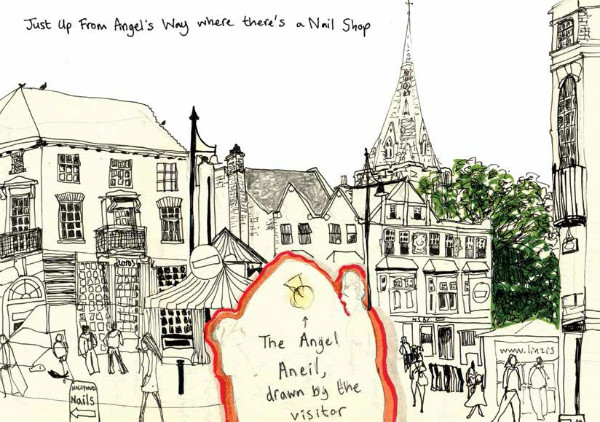 Just Up From Angel's Way where there's a Nail Shop
www.linzis
↑
The Angel
Aneil,
drawn by the
visitor
Nails
←